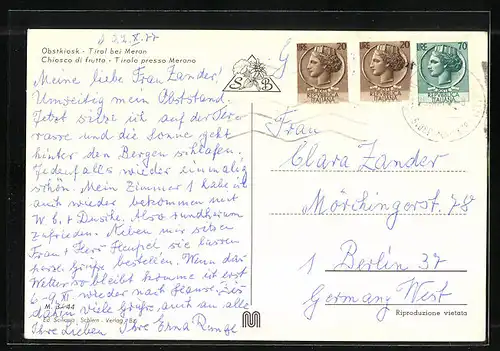 22.X.77
Obstkiosk - Tirol bei Meran
Chiosco di frutta - Tirolo presso Merano
Meine liebe Frau Zander!
Umseitig mein Obststand.
Jetzt sitze ich auf der Ter-
rasse und die Sonne geht
hinter den Bergen schlafen,
Jedenfalls wieder einmalig
schön. Mein Zimmer 1 habe ich
auch wieder bekommen mit
W.C. + Dusche. Also rundherum
zufrieden. Neben mir sitzen
Frau + Herr Heufel sie lassen
herzl. Grüße bestellen. Wenn das
Wetter so bleibt komme ich erst
6-9.XI wieder nach Hause. Bis
dahin viele Grüße, auch an alle
Ihre Lieben Ihre Erna Runge
S B
IRE 20
IRE 20
IRE 70
ITALIANA
ITALIANA
ITALIANA
Frau
Clara Zander
Mörchingerst. 78
1 Berlin 37
Germany West
Riproduzione vietata